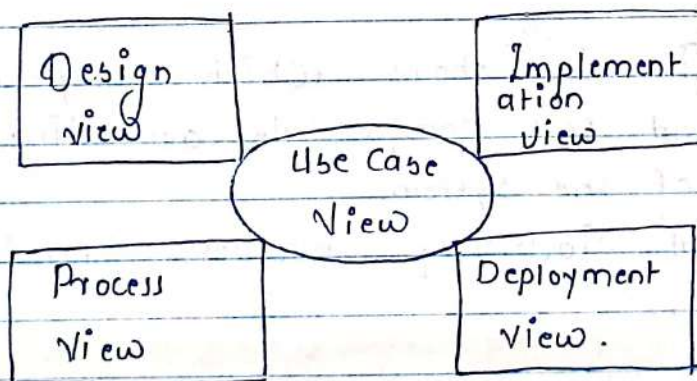 Design
view
Implement
ation
view
Use Case
View
Process
View
Deployment
view.